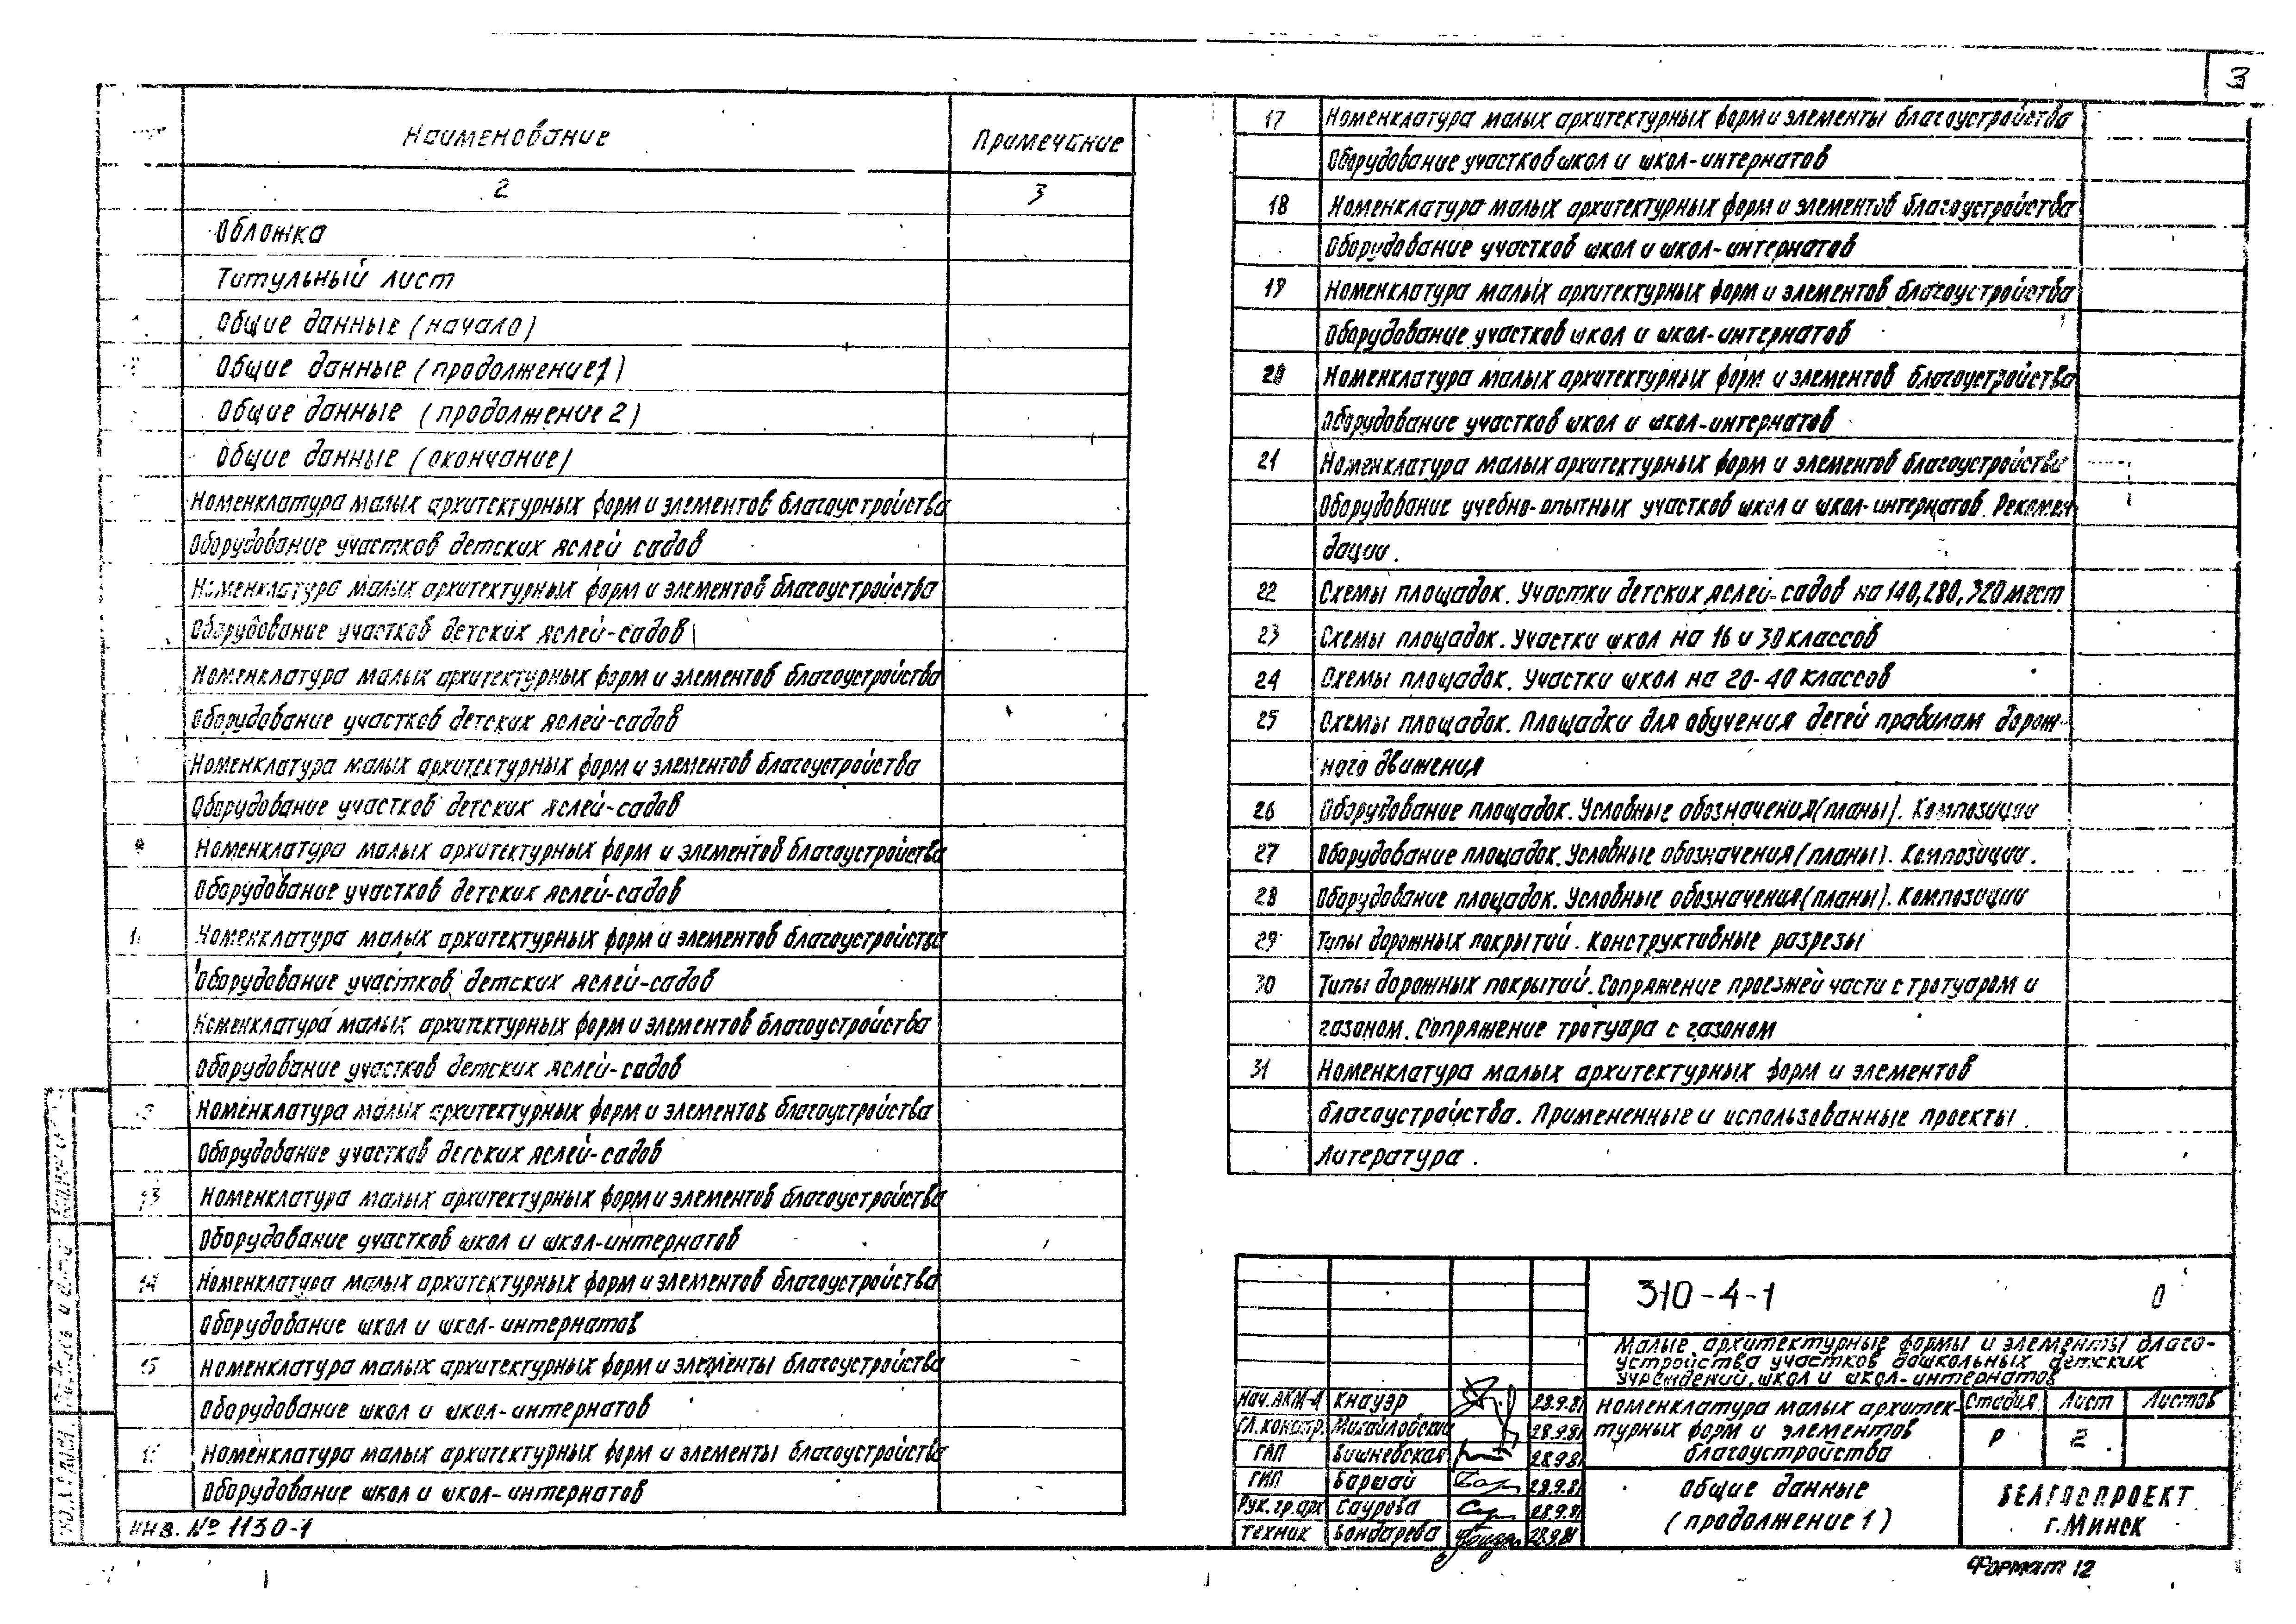 3
Наименование Примечание
2 3
Обложка
Титульный лист
Общие данные (начало)
Общие данные (продолжение 1)
Общие данные (продолжение 2)
Общие данные (окончание)
Номенклатура малых архитектурных форм и элементов благоустройства
Оборудование участков детских яслей садов
Номенклатура малых архитектурных форм и элементов благоустройства
Оборудование участков детских яслей-садов
Номенклатура малых архитектурных форм и элементов благоустройства
Оборудование участков детских яслей-садов
Номенклатура малых архитектурных форм и элементов благоустройства
Оборудование участков детских яслей-садов
Номенклатура малых архитектурных форм и элементов благоустройства
Оборудование участков детских яслей-садов
Номенклатура малых архитектурных форм и элементов благоустройства
Оборудование участков детских яслей-садов
Номенклатура малых архитектурных форм и элементов благоустройства
Оборудование участков детских яслей-садов
Номенклатура малых архитектурных форм и элементов благоустройства
Оборудование участков детских яслей-садов
13 Номенклатура малых архитектурных форм и элементов благоустройства
Оборудование участков школ и школ-интернатов
14 Номенклатура малых архитектурных форм и элементов благоустройства
Оборудование школ и школ-интернатов
15 Номенклатура малых архитектурных форм и элементы благоустройства
Оборудование школ и школ-интернатов
Номенклатура малых архитектурных форм и элементы благоустройства
Оборудование школ и школ-интернатов
инв. № 1130-1
17 Номенклатура малых архитектурных форм и элементы благоустройства
Оборудование участков школ и школ-интернатов
18 Номенклатура малых архитектурных форм и элементов благоустройства
Оборудование участков школ и школ-интернатов
19 Номенклатура малых архитектурных форм и элементов благоустройства
Оборудование участков школ и школ-интернатов
20 Номенклатура малых архитектурных форм и элементов благоустройства
Оборудование участков школ и школ-интернатов
21 Номенклатура малых архитектурных форм и элементов благоустройства
Оборудование учебно-опытных участков школ и школ-интернатов. Рекомен
дации.
22 Схемы площадок. Участки детских яслей-садов на 140, 280, 320 мест
23 Схемы площадок. Участки школ на 16 и 30 классов
24 Схемы площадок. Участки школ на 20-40 классов
25 Схемы площадок. Площадки для обучения детей правилам дорож-
ного движения
26 Оборудование площадок. Условные обозначения (планы). Композиции
27 Оборудование площадок. Условные обозначения (планы). Композиции.
28 Оборудование площадок. Условные обозначения (планы). Композиции
29 Типы дорожных покрытий. Конструктивные разрезы
30 Типы дорожных покрытий. Сопряжение проезжей части с тротуаром и
газоном. Сопряжение тротуара с газоном
31 Номенклатура малых архитектурных форм и элементов
благоустройства. Примененные и использованные проекты.
Литература.
310-4-1 0
Малые архитектурные формы и элементы благо-
устройства участков дошкольных детских
учреждений, школ и школ-интернатов
Нач. АКМ-1 Кнауэр 28.9.81
Гл. констр. Михайловский 28.9.81
ГАП Вишневская 28.9.81
ГИП Баршай 28.9.81
Рук. гр. арх Саурова 28.9.81
Техник Бондарева 28.9.81
Номенклатура малых архитек-
турных форм и элементов
благоустройства
Стадия Лист Листов
Р 2
Общие данные
(продолжение 1)
БЕЛГОСПРОЕКТ
г. МИНСК
Формат 12